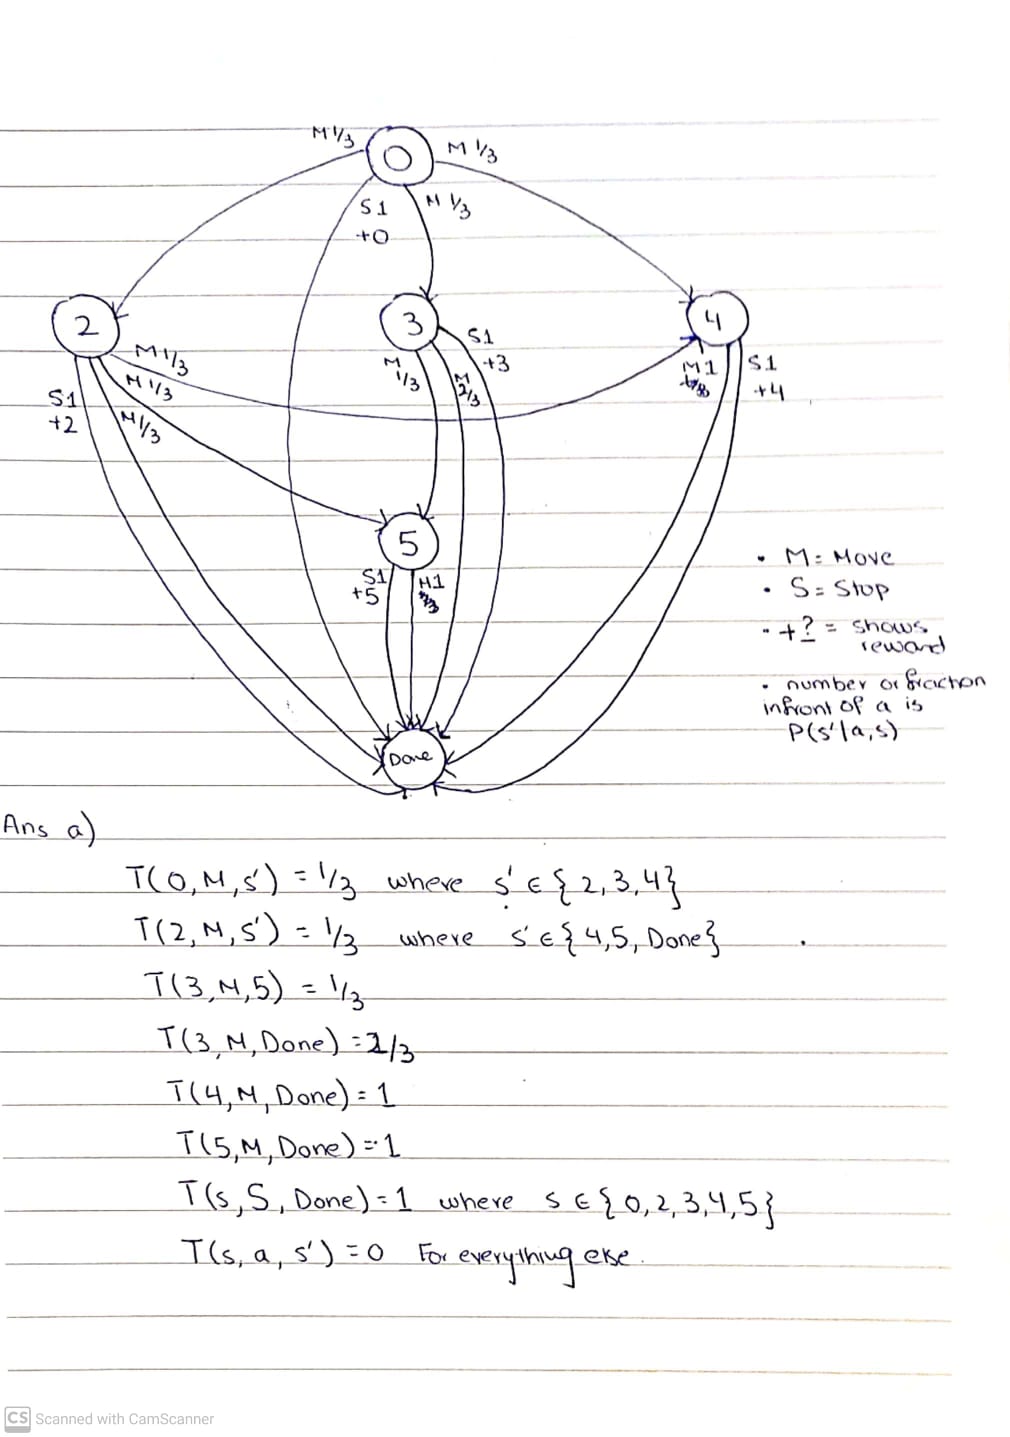 M 1/3
0
M 1/3
S1
+0
M 1/3
2
3
4
M 1/3
M 1/3
M 1/3
S1
+2
M
1/3
M
2/3
S1
+3
M1
S1
+4
5
S1
+5
M1
Done
• M = Move
• S = Stop
• +? = shows
reward
• number or fraction
infront of a is
P(s'|a,s)
Ans a)
T(0,M,s') = 1/3 where s' ∈ {2,3,4}
T(2,M,s') = 1/3 where s' ∈ {4,5, Done}
T(3,M,5) = 1/3
T(3,M,Done) = 2/3
T(4,M,Done) = 1
T(5,M,Done) = 1
T(s,S,Done) = 1 where s ∈ {0,2,3,4,5}
T(s,a,s') = 0 For everything else.
CS Scanned with CamScanner